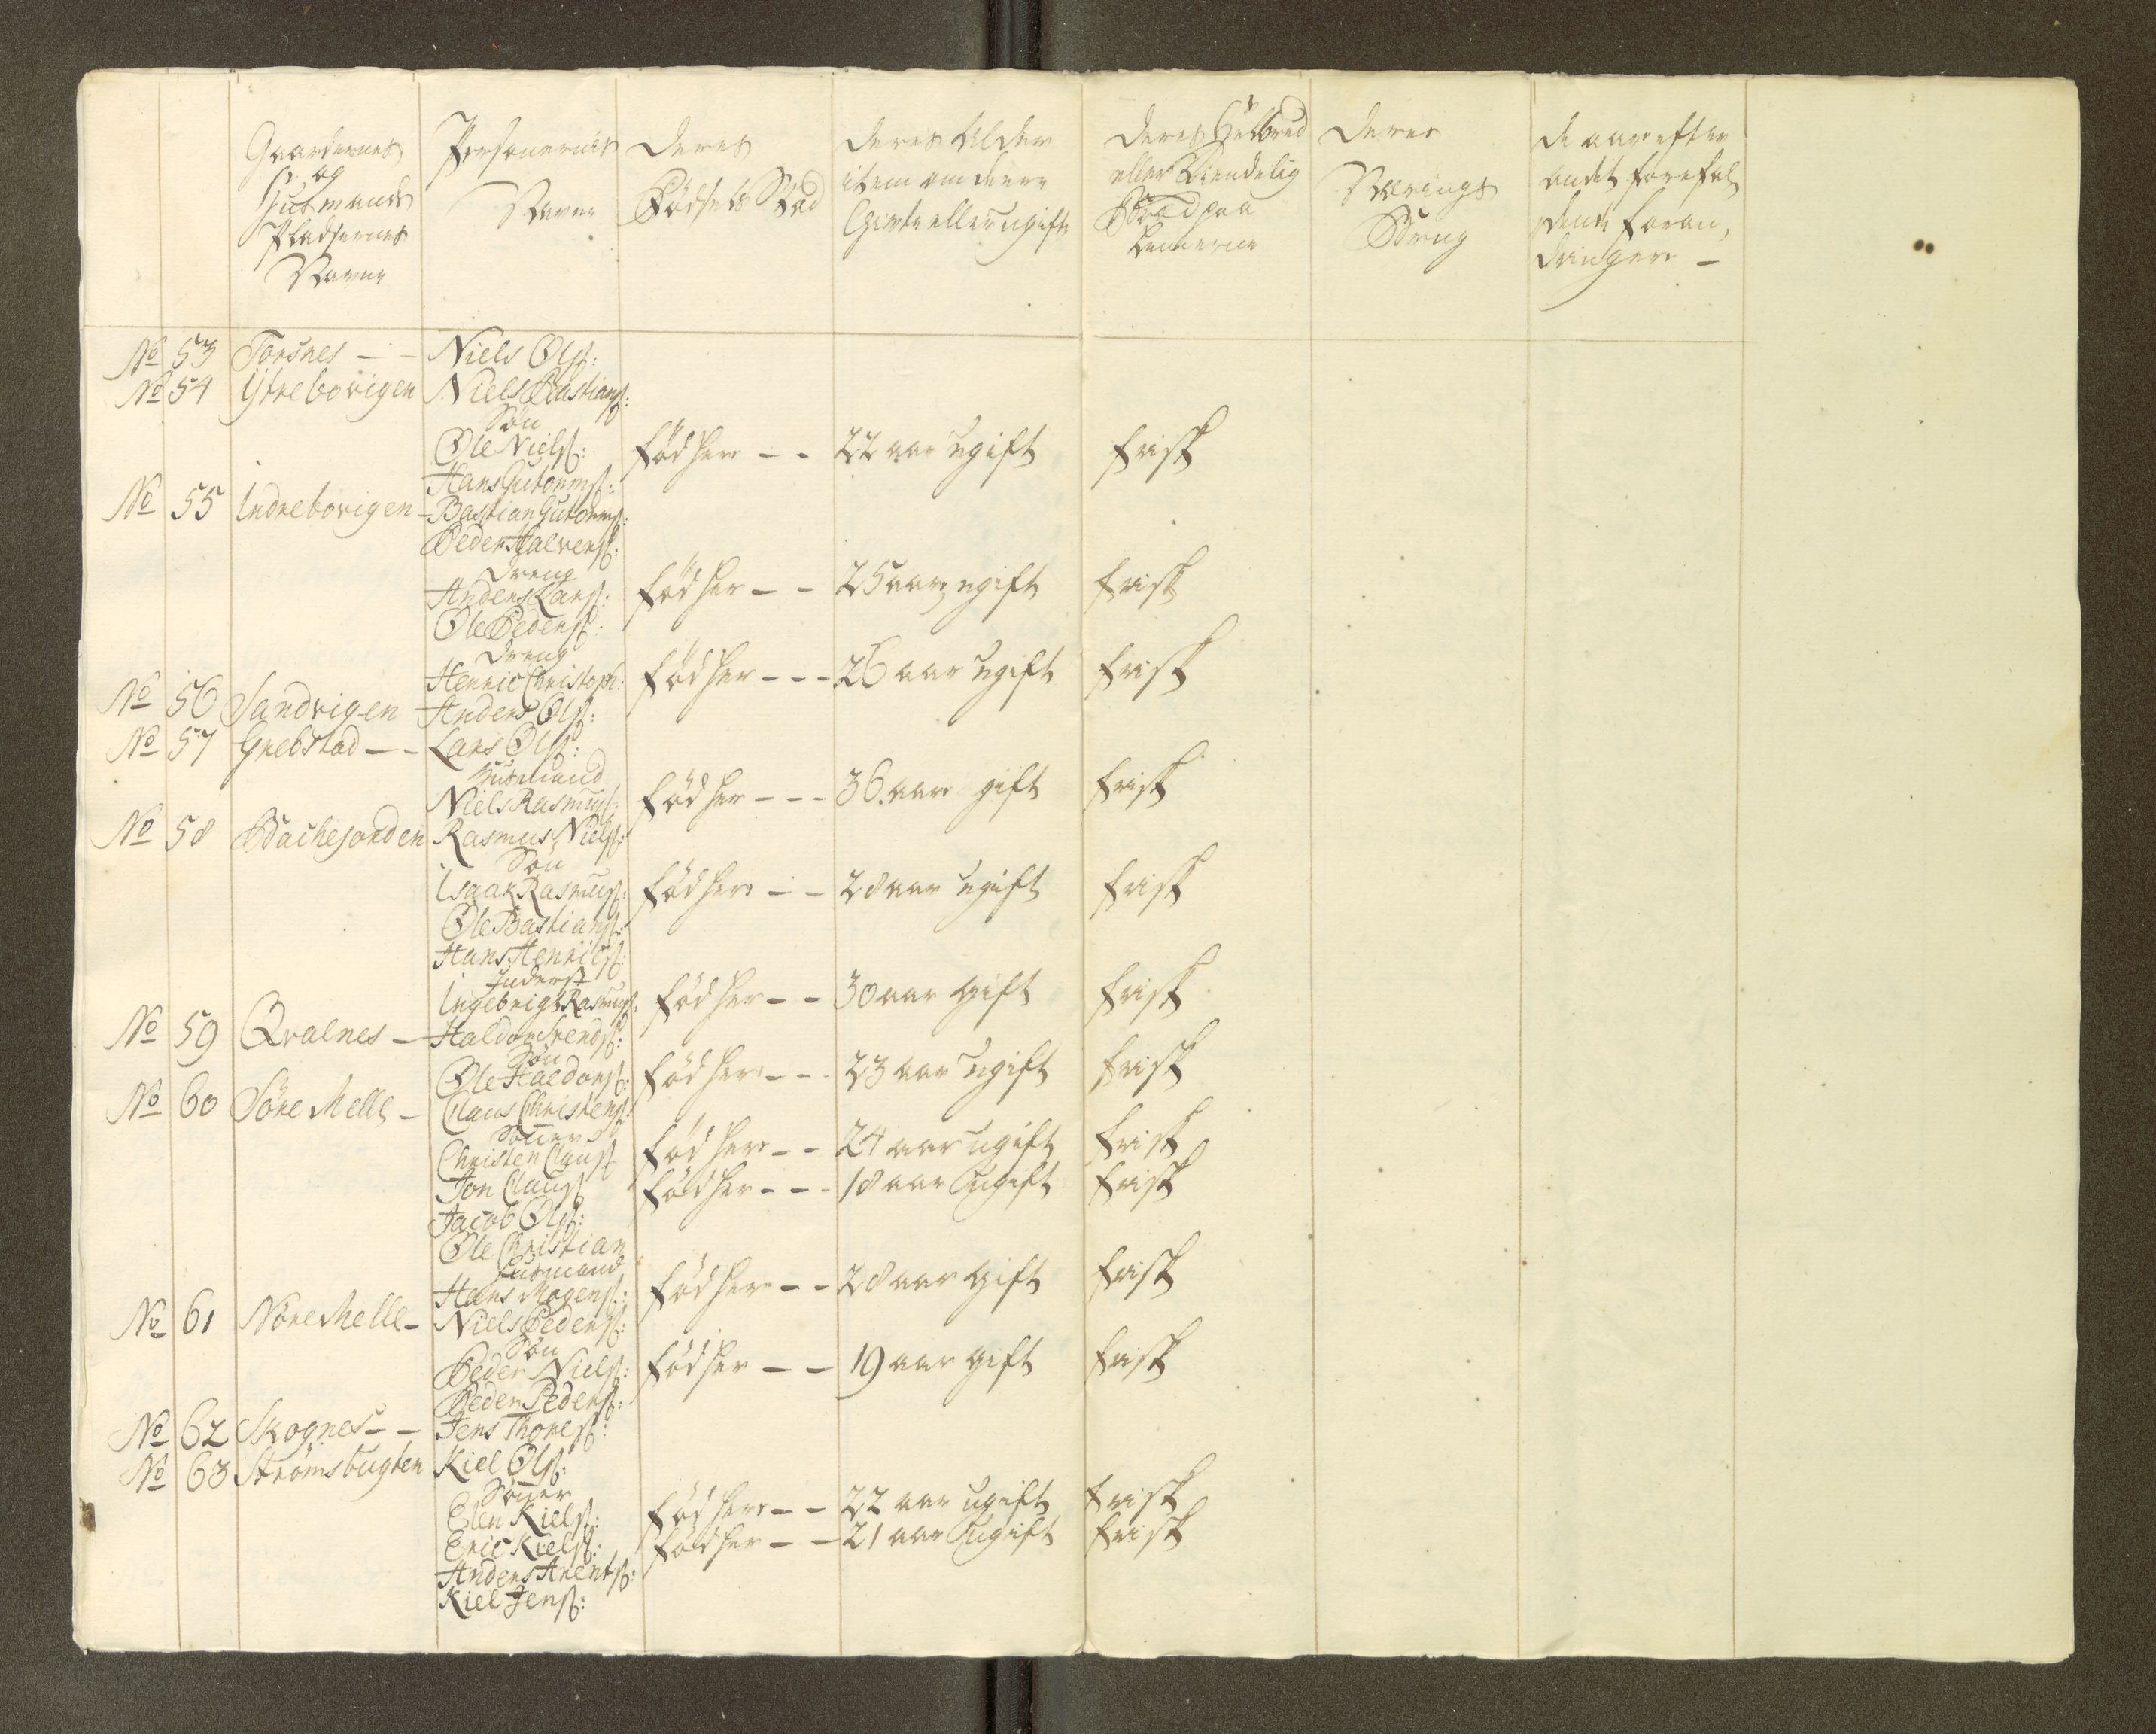 Gaardernes
og
Husmands
Pladsernes
Navne
Personernes
Navne
Deres
Fødsels Stæd
deres Alder
item om de ere
Gifte eller ugifte
deres Helbred
eller Kiendelig
paa
Lemerne
deres
Nærings
Brug
de aar efter
andet forefal,
dende foran,
dringer —
No 53 Torsnes — — Niels Ols:
No 54 Ytrebovigen Niels Bastians:
Søn
Ole Niels: født her — — 22 aar ugift frisk
Hans Gutorms:
No 55 Indrebovigen — Bastian Gutorms:
Peder Halvers:
Dreng
Anders Lars: født her — — 25 aar ugift frisk
Ole Peders:
Dreng
Henric Christoph: født her — — — 26 aar ugift frisk
No 56 Sandvigen Anders Ols:
No 57 Grebstad — — Lars Ols:
Husmand
Niels Rasmus: født her — — — 36 aar gift frisk
No 58 Bachejorden Rasmus Niels:
Søn
Isaak Rasmus: født her — — 28 aar ugift frisk
Ole Bastians:
Hans Henrics:
Inderst
Ingebrigt Rasmus: født her — — 30 aar gift frisk
No 59 Qvalnes — Haldor Svends:
Søn
Ole Haldors: født her — — 23 aar ugift frisk
No 60 Søre Melle — Claus Christens:
Sønner
Christen Claus født her — — 24 aar ugift frisk
Jon Claus født her — — — 18 aar ugift frisk
Jacob Ols:
Ole Christian
Husmand
Hans Mogens: født her — — 28 aar gift frisk
No 61 Nöre Melle — Niels Peders:
Søn
Peder Niels: født her — — 19 aar gift frisk
Peder Peders:
No 62 Skognes — — Jens Thores:
No 63 Strømsbugten Kiel Ols:
Sønner
Elen Kiels: født her — — 22 aar ugift frisk
Eric Kiels: født her — — 21 aar ugift frisk
Anders Arents:
Kiel Jens: